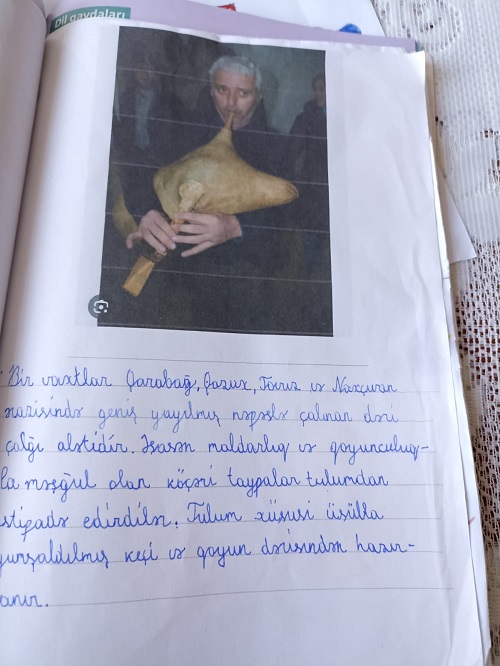 Dil qaydaları
Bir vaxtlar Qarabağ, Qazax, Tovuz və Naxçıvan
ərazisində geniş yayılmış nəfəslə çalınan dəri
çalğı alətidir. Əsasən maldarlıq və qoyunculuq-
la məşğul olan köçəri tayfalar tulumdan
istifadə edirdilər. Tulum xüsusi üsülla
yumşaldılmış keçi və qoyun dərisindən hazır-
lanır.